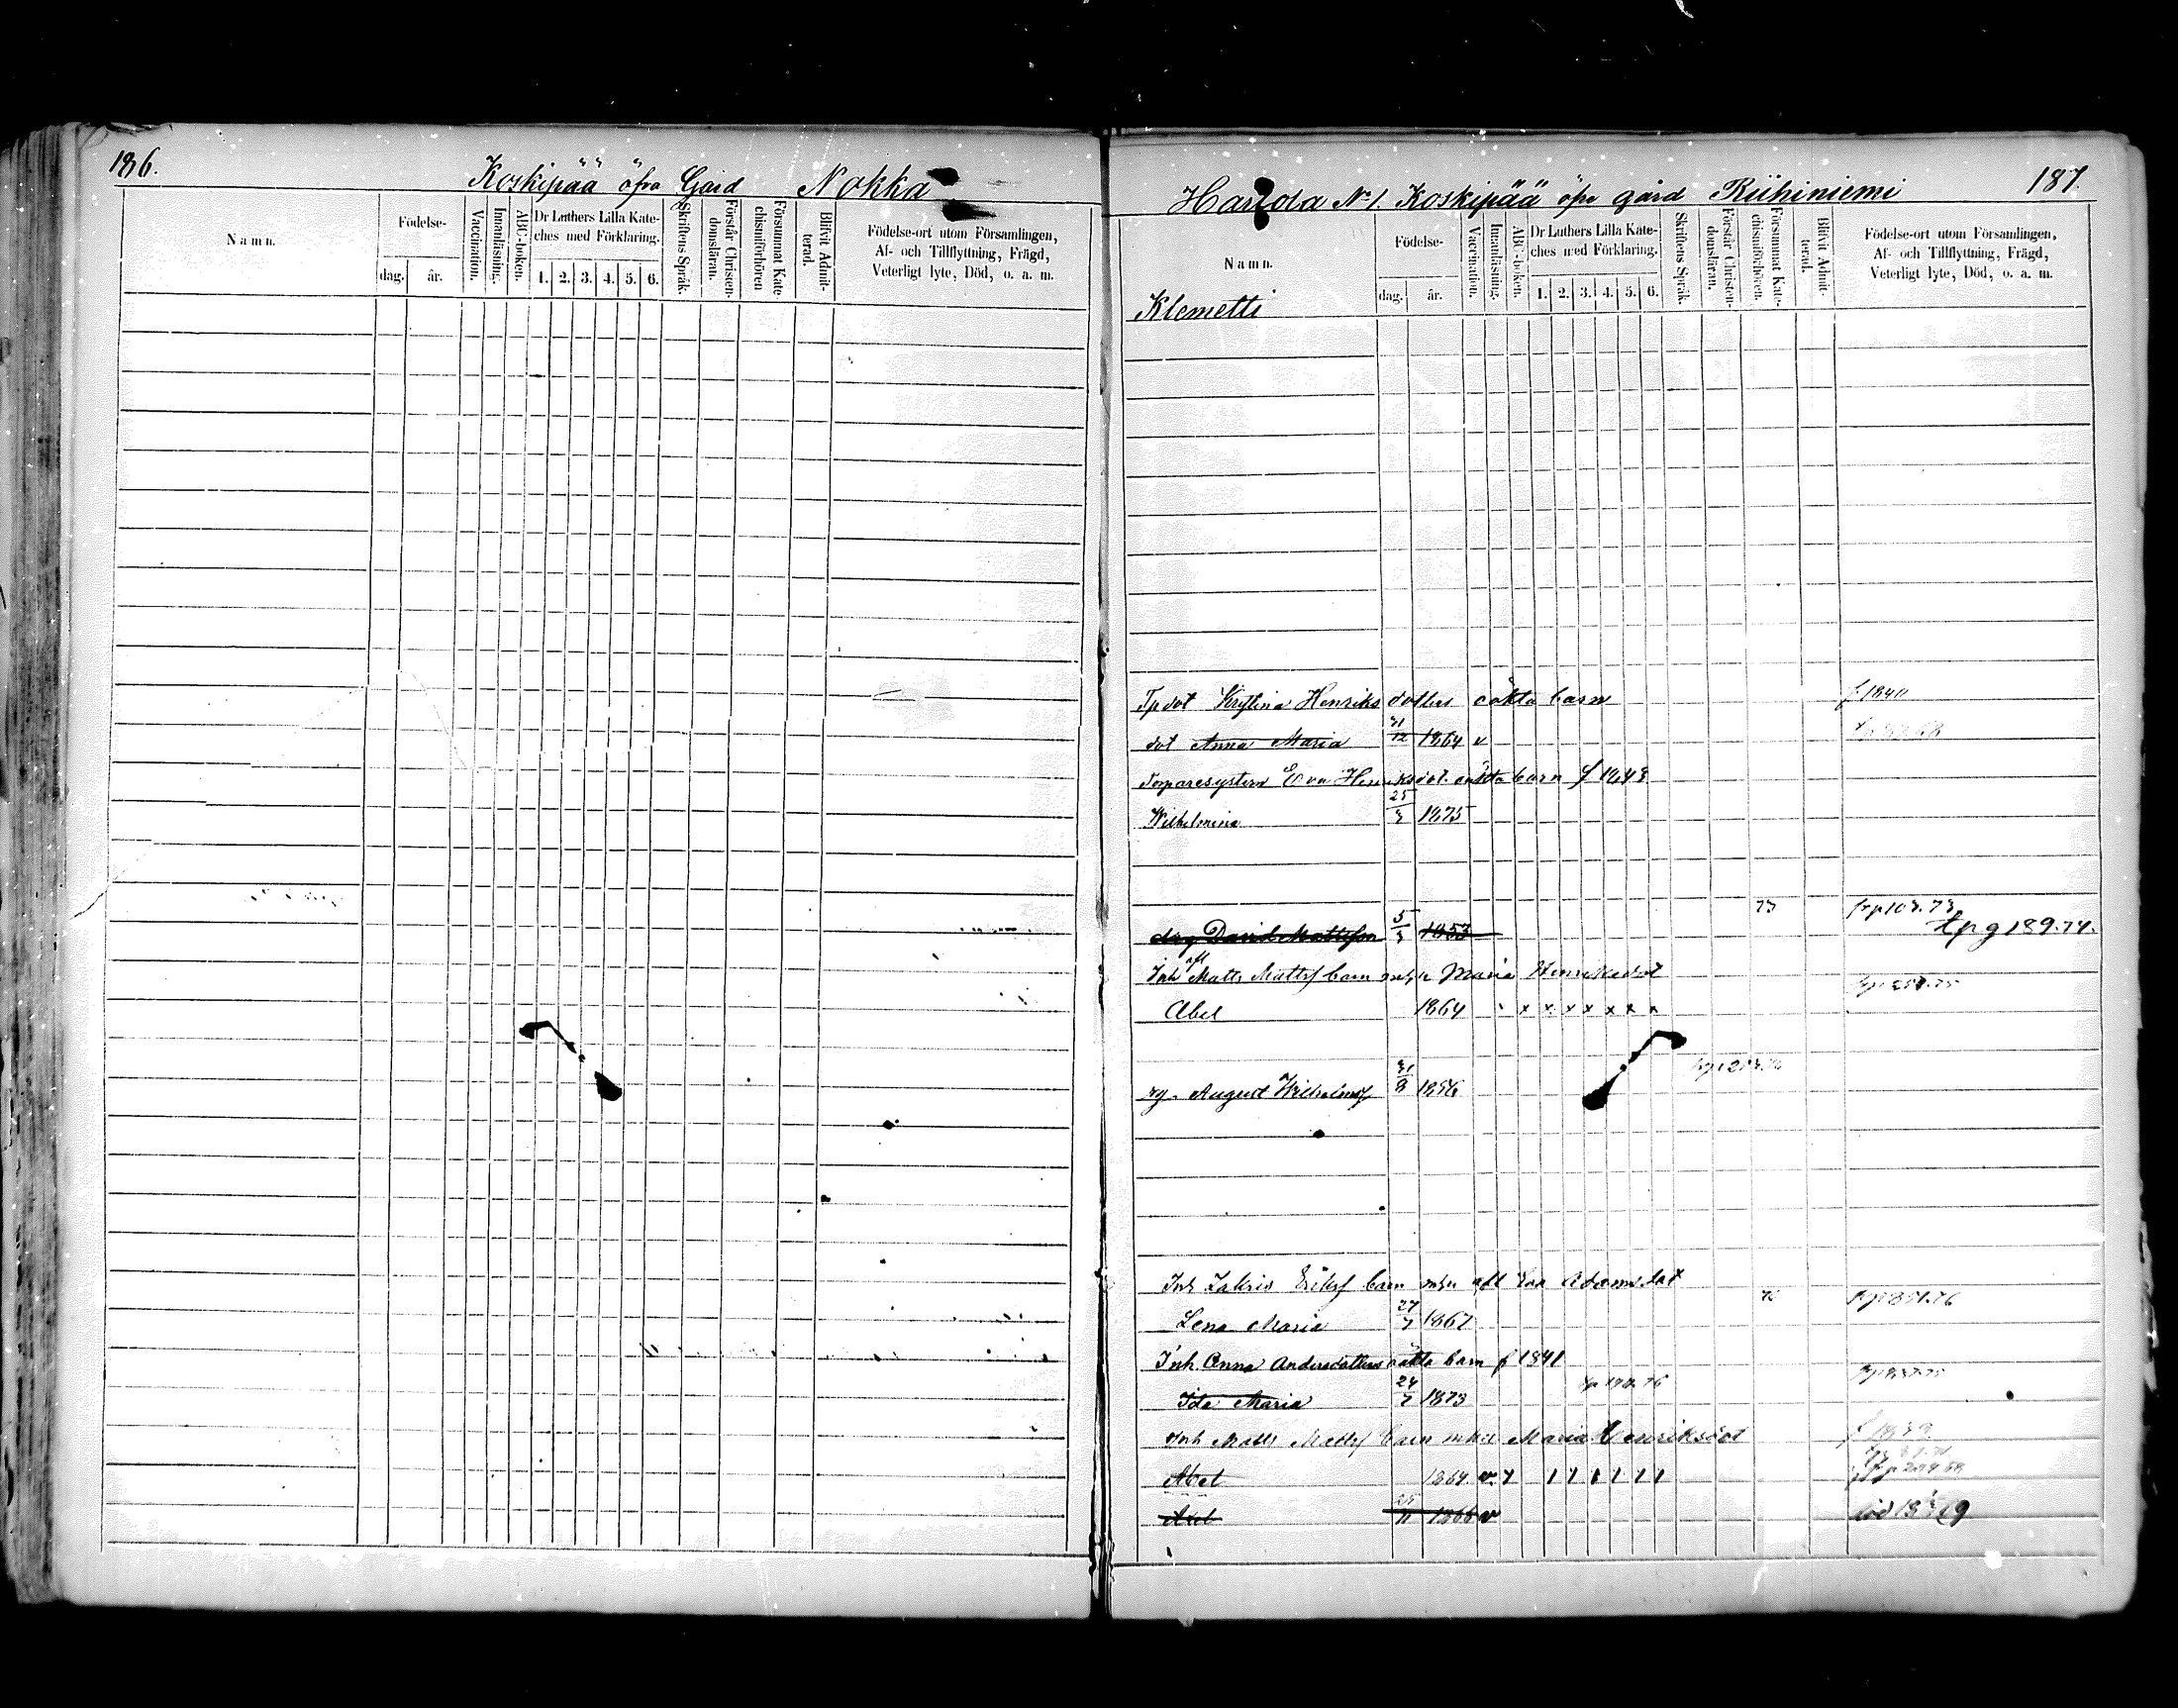 186.
Koskipää öfra Gård Nokka
Namn.
Födelse-
dag. år.
Vaccination.
Innanläsning.
ABC-boken.
Dr Luthers Lilla Kate-
ches med Förklaring.
1. 2. 3. 4. 5. 6.
Skriftens Språk.
Förstår Christen-
domsläran.
Försummat Kate
chismiförhören
Blifvit Admit-
terad.
Födelse-ort utom Församlingen,
Af- och Tillflyttning, Frägd,
Veterligt lyte, Död, o. a. m.
187.
No 1. Koskipää öfra gård Riihiniemi
Namn.
Klemetti
Födelse-
dag. år.
Vaccination.
Innanläsning.
ABC-boken.
Dr Luthers Lilla Kate-
ches med Förklaring.
1. 2. 3. 4. 5. 6.
Skriftens Språk.
Förstår Christen-
domsläran.
Försummat Kate-
chismiförhören.
Blifvit Admit-
terad.
Födelse-ort utom Församlingen,
Af- och Tillflyttning, Frägd,
Veterligt lyte, Död, o. a. m.
Tp dot Kristina Henriks dotters oäkta barn f 1840
dot Anna Maria 31/12 1864 v
Torparesystern Eva Henriksdot. oäkta barn f 1843
Wilhelmina 25/3 1875
drg David Mattsson 5/3 1853 73 frp 103.73 tpg 189.74.
Inh afl Matts Mattsf barn m h u Maria Henriksdot
Abel 1864 x x x x x x x
August Wilhelmsf 31/8 1856
Inh Zakris Eriksf barn mhu afl Eva Adamsdot
Lena Maria 27/7 1867
Inh. Anna Andersdotters oäkta barn f 1841
Ida Maria 24/7 1873
Inh Matts Mattsf barn mhu Maria Henriksdot
Abel 1864 v
Axel 1866 v